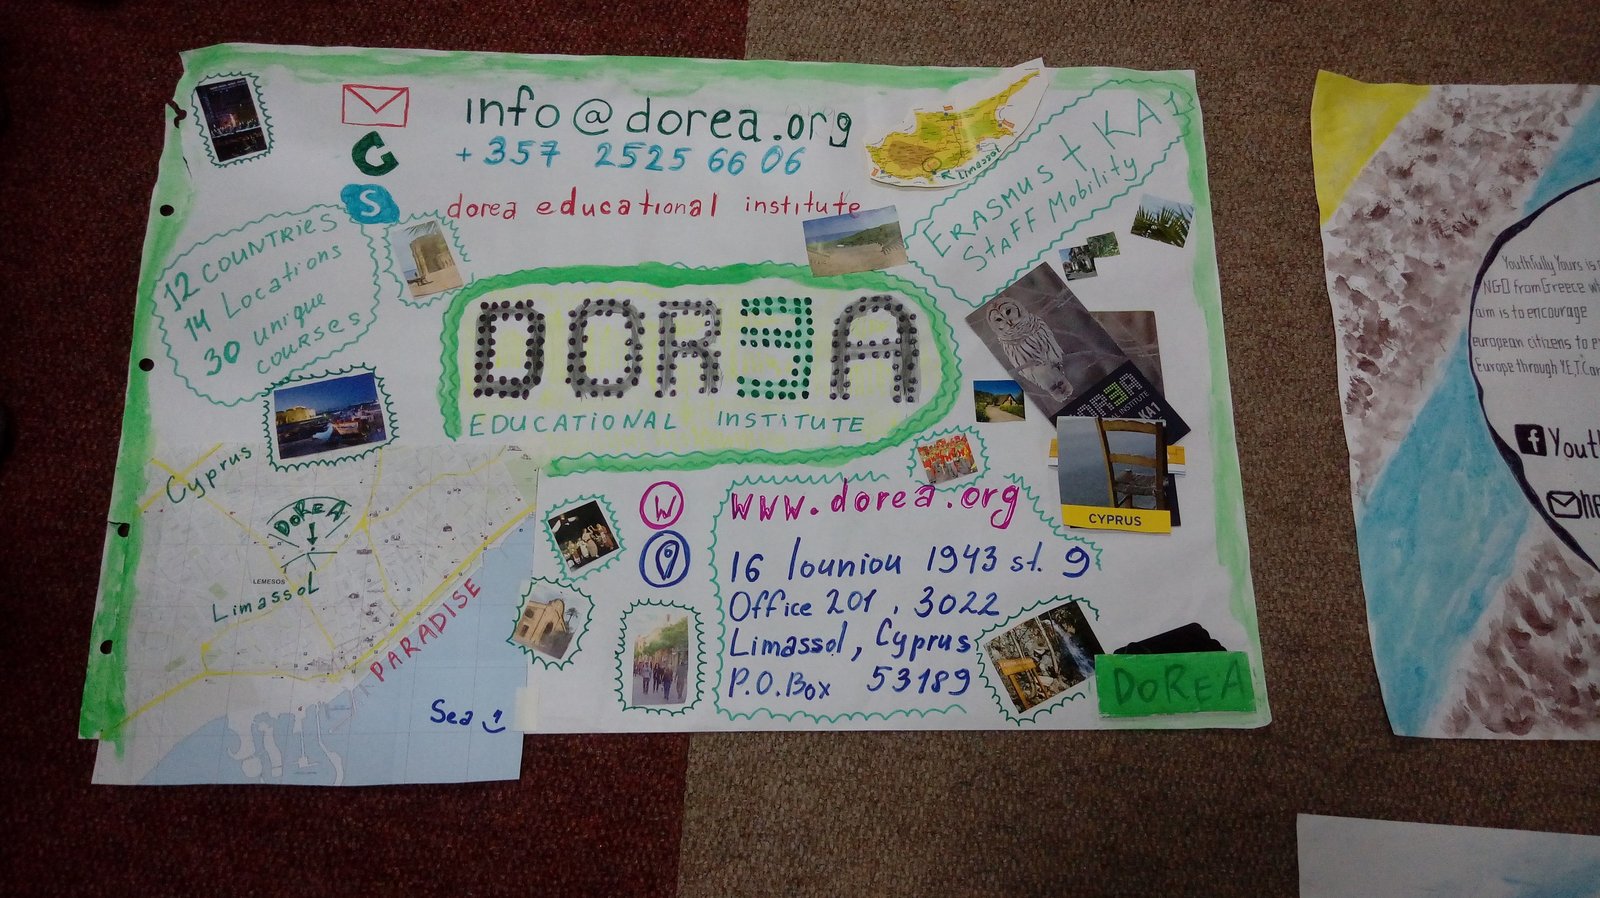 info@dorea.org
+357 2525 66 06
S
dorea educational institute
Limassol
ERASMUS + KA1
STAFF Mobility
12 COUNTRIES
14 Locations
30 unique
courses
DORƎA
EDUCATIONAL INSTITUTE
DORƎA
INSTITUTE
KA1
CYPRUS
Cyprus
DOREA
LEMESOS
LimassoL
PARADISE
Sea
W
www.dorea.org
16 Iouniou 1943 st. 9
Office 201, 3022
Limassol, Cyprus
P.O.Box 53189
DOREA
Youthfully Yours is
NGO from Greece
aim is to encourage
european citizens to
Europe through Y.E.T.
f